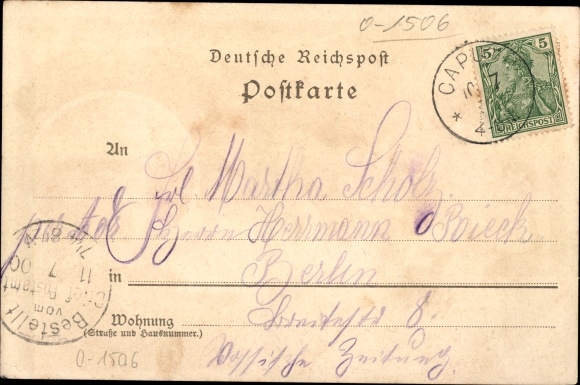 0-1506
Deutsche Reichspost
Postkarte
5 5
REICHSPOST
CAPU
* 10 7
An Frl Martha Scholz.
Herrn Herrmann
in Berlin
Bestellt
vom
Postamt
11 7 00
7½-8¼ V
Wohnung Breitestr 8.
(Straße und Hausnummer.)
Vossische Zeitung.
0-1506